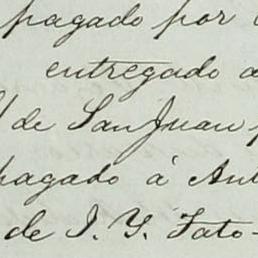 pagado por
entregado a
de San Juan
pagado á
de I. Y. Tato-